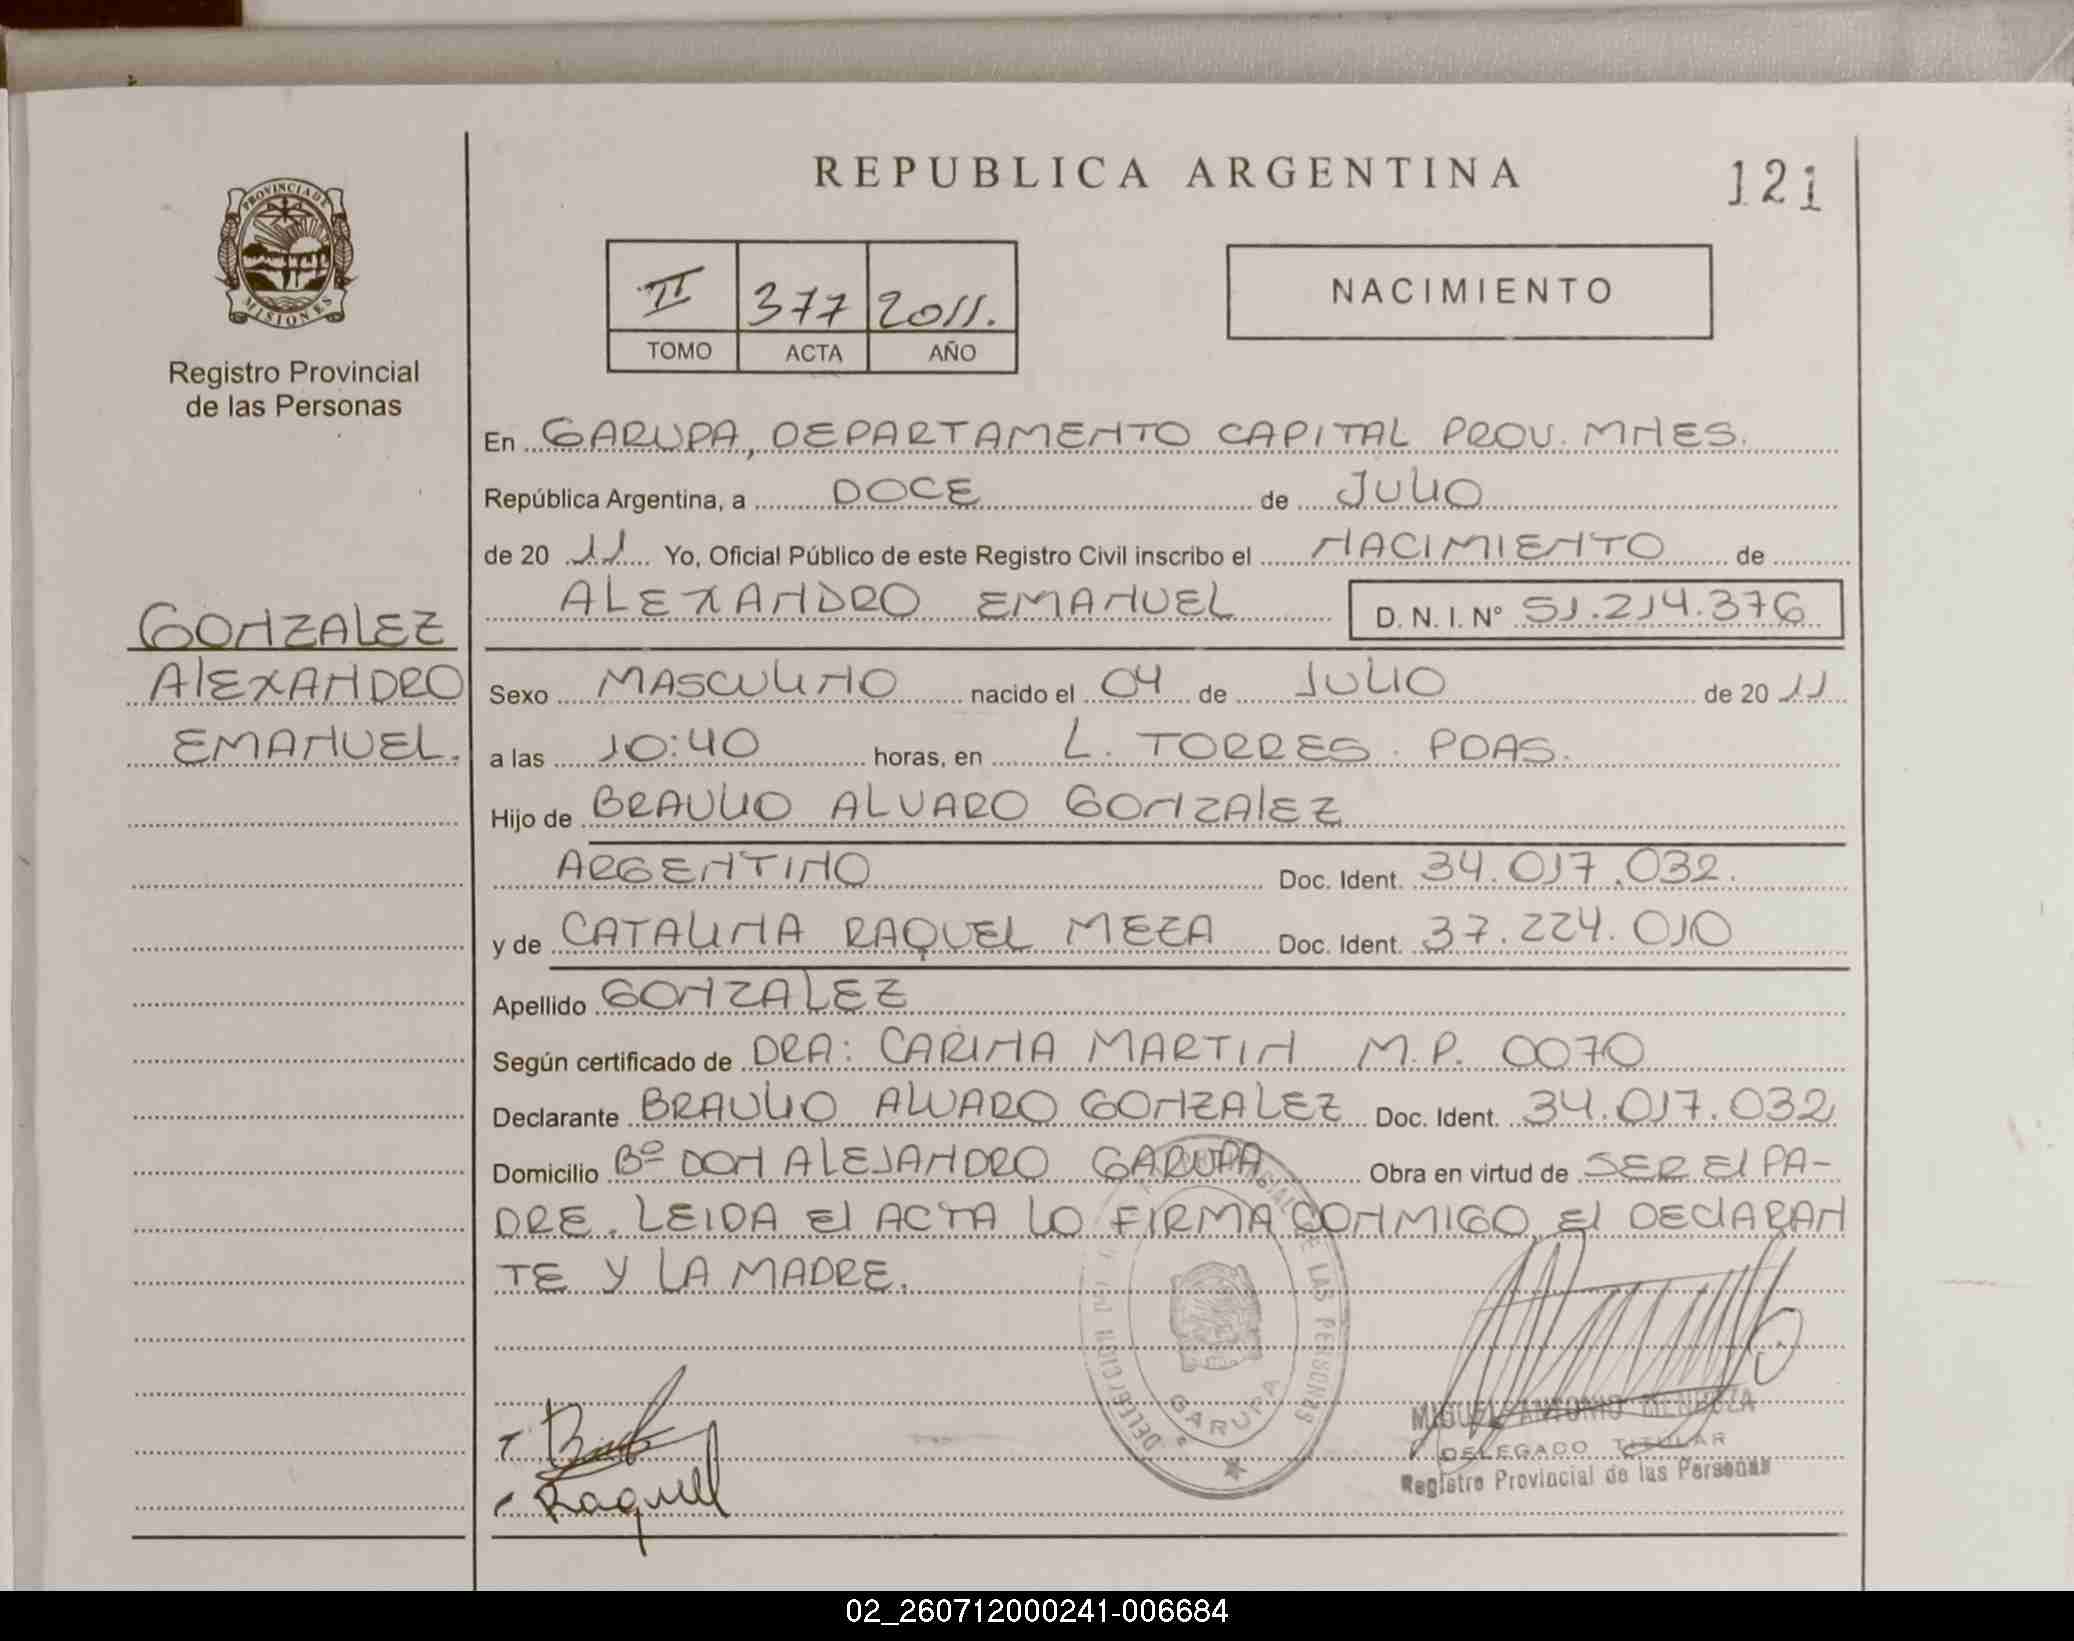 REPUBLICA ARGENTINA
121
PROVINCIA DE
MISIONES
Registro Provincial
de las Personas
II 377 2011.
TOMO ACTA AÑO
NACIMIENTO
En GARUPA, DEPARTAMENTO CAPITAL PROV. MNES.
República Argentina, a DOCE de JULIO
de 20 11 Yo, Oficial Público de este Registro Civil inscribo el NACIMIENTO de
ALEXANDRO EMANUEL D. N. I. Nº 51.214.376
GONZALEZ
ALEXANDRO
EMANUEL.
Sexo MASCULINO nacido el 04 de JULIO de 20 11
a las 10:40 horas, en L. TORRES. PDAS.
Hijo de BRAULIO ALVARO GONZALEZ
ARGENTINO Doc. Ident. 34.017.032.
y de CATALINA RAQUEL MEZA Doc. Ident. 37.224.010
Apellido GONZALEZ
Según certificado de DRA: CARINA MARTIN M.P. 0070
Declarante BRAULIO ALVARO GONZALEZ Doc. Ident. 34.017.032
Domicilio Bº DON ALEJANDRO GARUPA Obra en virtud de SER El PA-
DRE. LEIDA El ACTA LO FIRMA CONMIGO El DEClARAN
TE Y LA MADRE.
DE LAS PERSONAS
DELEGACION
GARUPA
Raquel
MIGUEL ANTONIO MENDOZA
DELEGADO TITULAR
Registro Provincial de las Personas
02_260712000241-006684